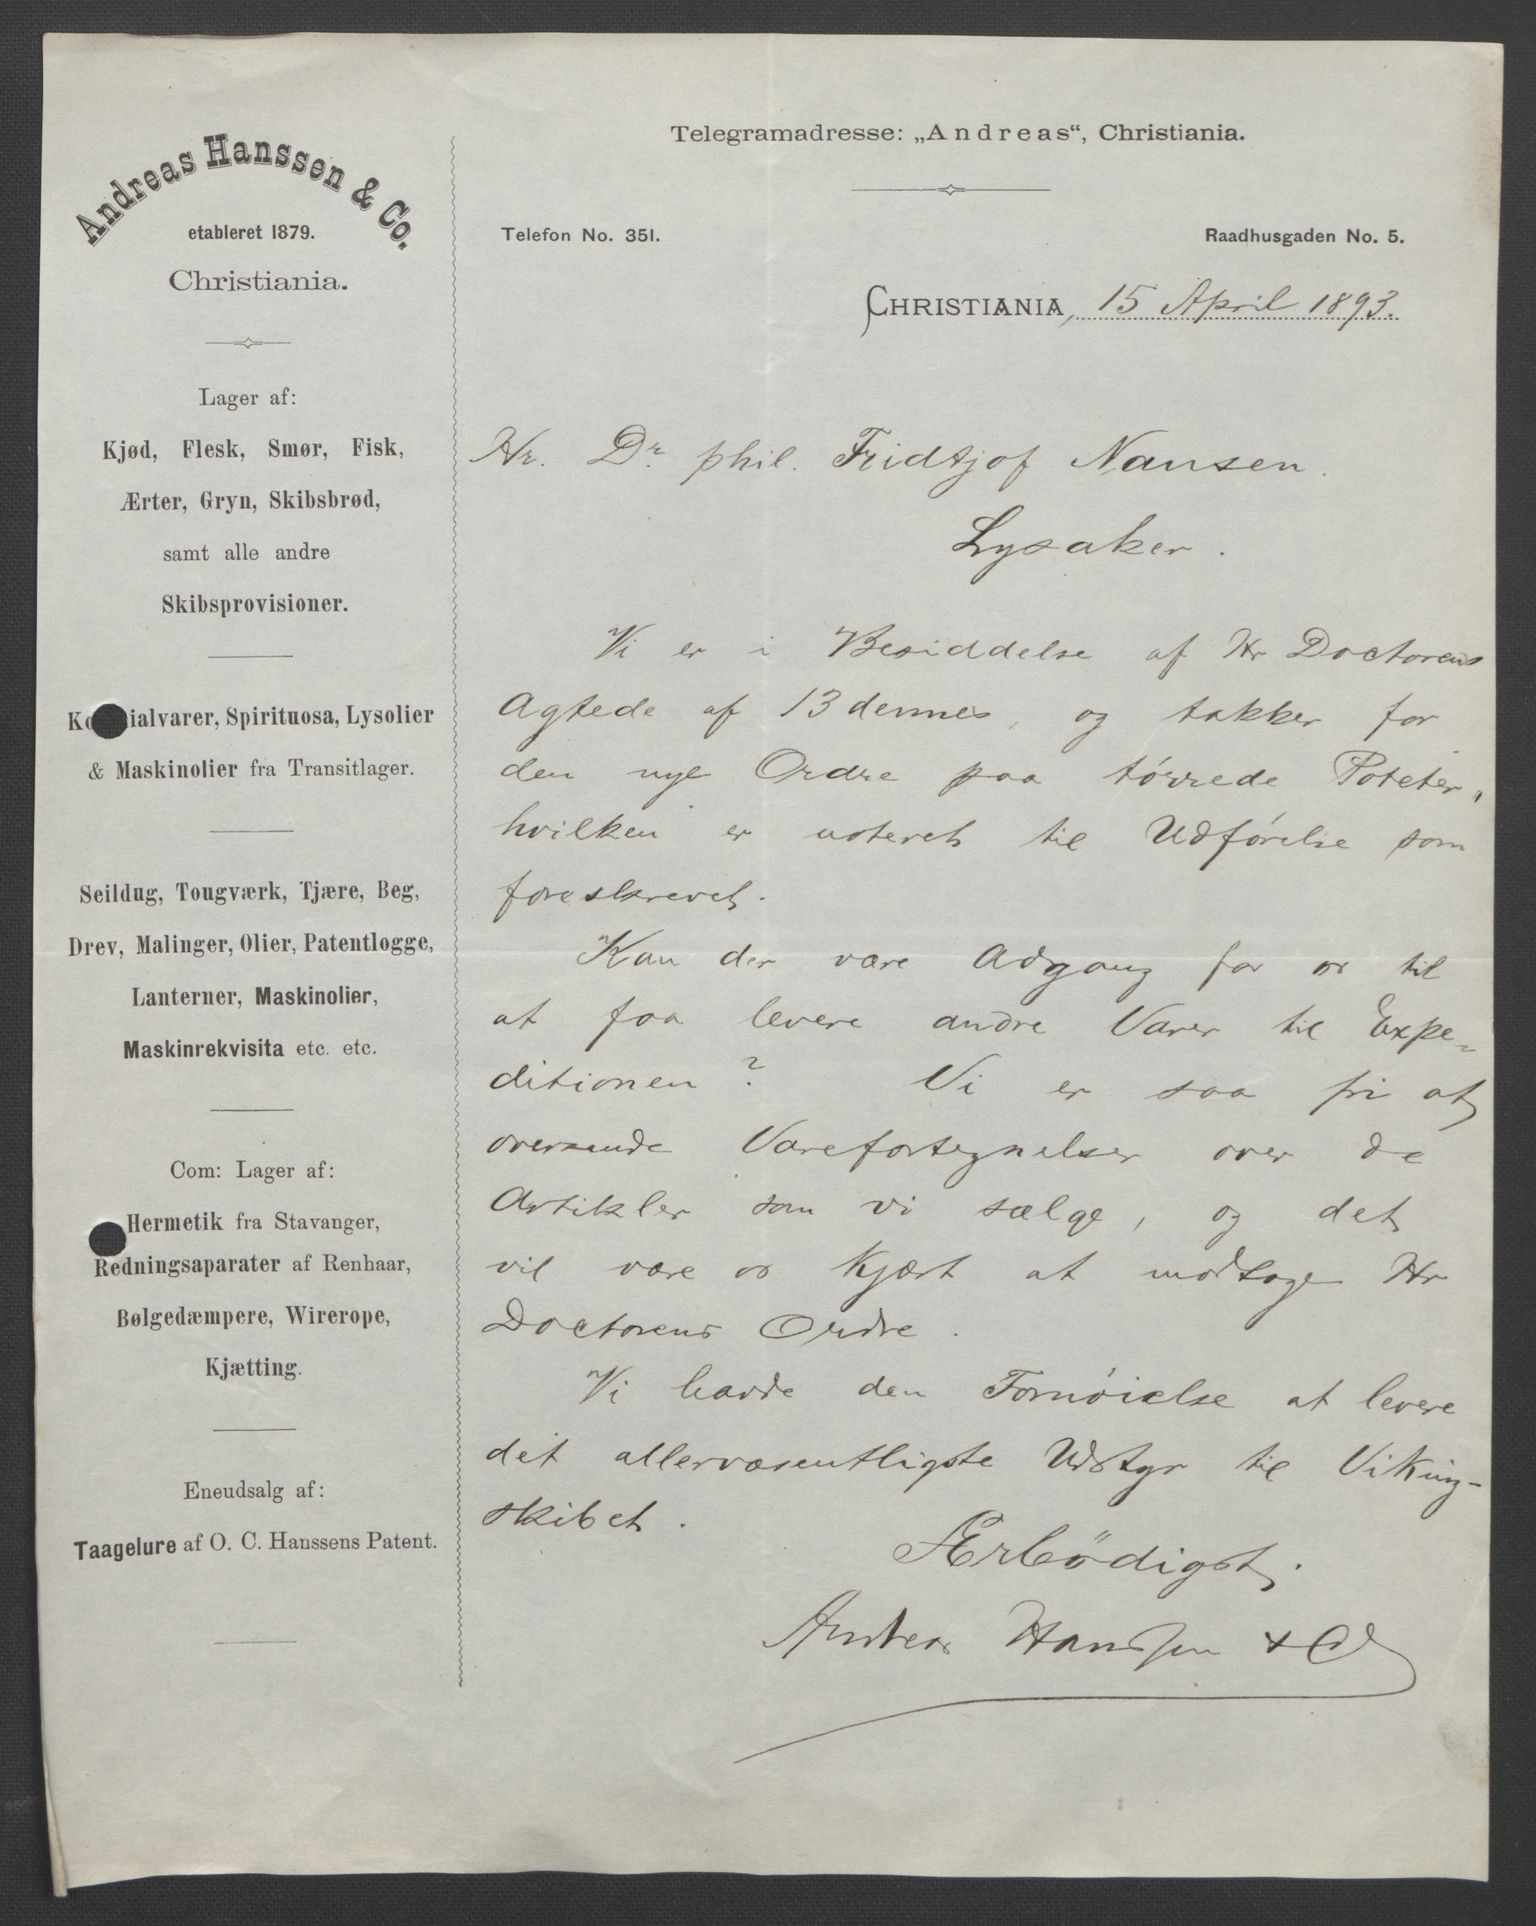 Andreas Hanssen & Co.
etableret 1879.
Christiania.
Lager af:
Kjød, Flesk, Smør, Fisk,
Ærter, Gryn, Skibsbrød,
samt alle andre
Skibsprovisioner.
Ko ialvarer, Spirituosa, Lysolier
& Maskinolier fra Transitlager.
Seildug, Tougværk, Tjære, Beg,
Drev, Malinger, Olier, Patentlogge,
Lanterner, Maskinolier,
Maskinrekvisita etc. etc.
Com: Lager af:
Hermetik fra Stavanger,
Redningsaparater af Renhaar,
Bølgedæmpere, Wirerope,
Kjætting.
Eneudsalg af:
Taagelure af O. C. Hanssens Patent.
Telegramadresse: „Andreas“, Christiania.
Telefon No. 351.
Raadhusgaden No. 5.
CHRISTIANIA, 15 April 1893.
Hr. Dr. phil. Fridtjof Nansen.
Lysaker.
Vi er i Besiddelse af Hr Doctorens
Agtede af 13 dennes, og takker for
den nye Ordre paa tórrede Poteter,
hvilken er noteret til Udfórelse som
foreskrevet.
Kan der være Adgang for os til
at faa levere andre Varer til Expe-
ditionen? Vi er saa fri at
oversende Varefortegnelser over de
Artikler som vi sælge, og det
vil være os Kjært at modtage Hr
Doctorens Ordre.
Vi havde den Fornóielse at levere
det allervæsentligste Udstyr til Viking-
skibet.
Ærbödigst.
Andreas Hanssen & Co